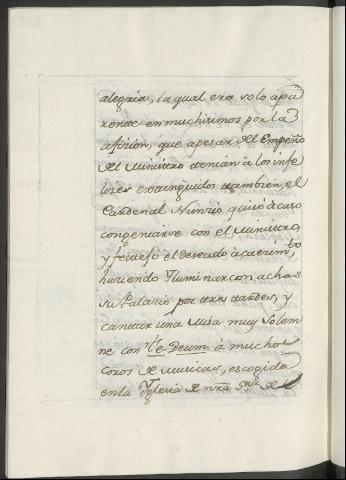 alegria, la qual era solo apa
rente en muchisimos por la
aficion, que apesar del Empeño
del Ministro tenian a los infe
lices extinguidos tambien, el
Cardenal Nunzio quisó acaso
congeniarse con el Ministro,
y festejó el deseado acaecim.to
haciendo Iluminar con achas
su Palacio por tres tardes, y
cantar una Misa muy Solem
ne con Te-Deum à muchos
coros de Musicas, escogida
en la Yglesia de nra Sra de